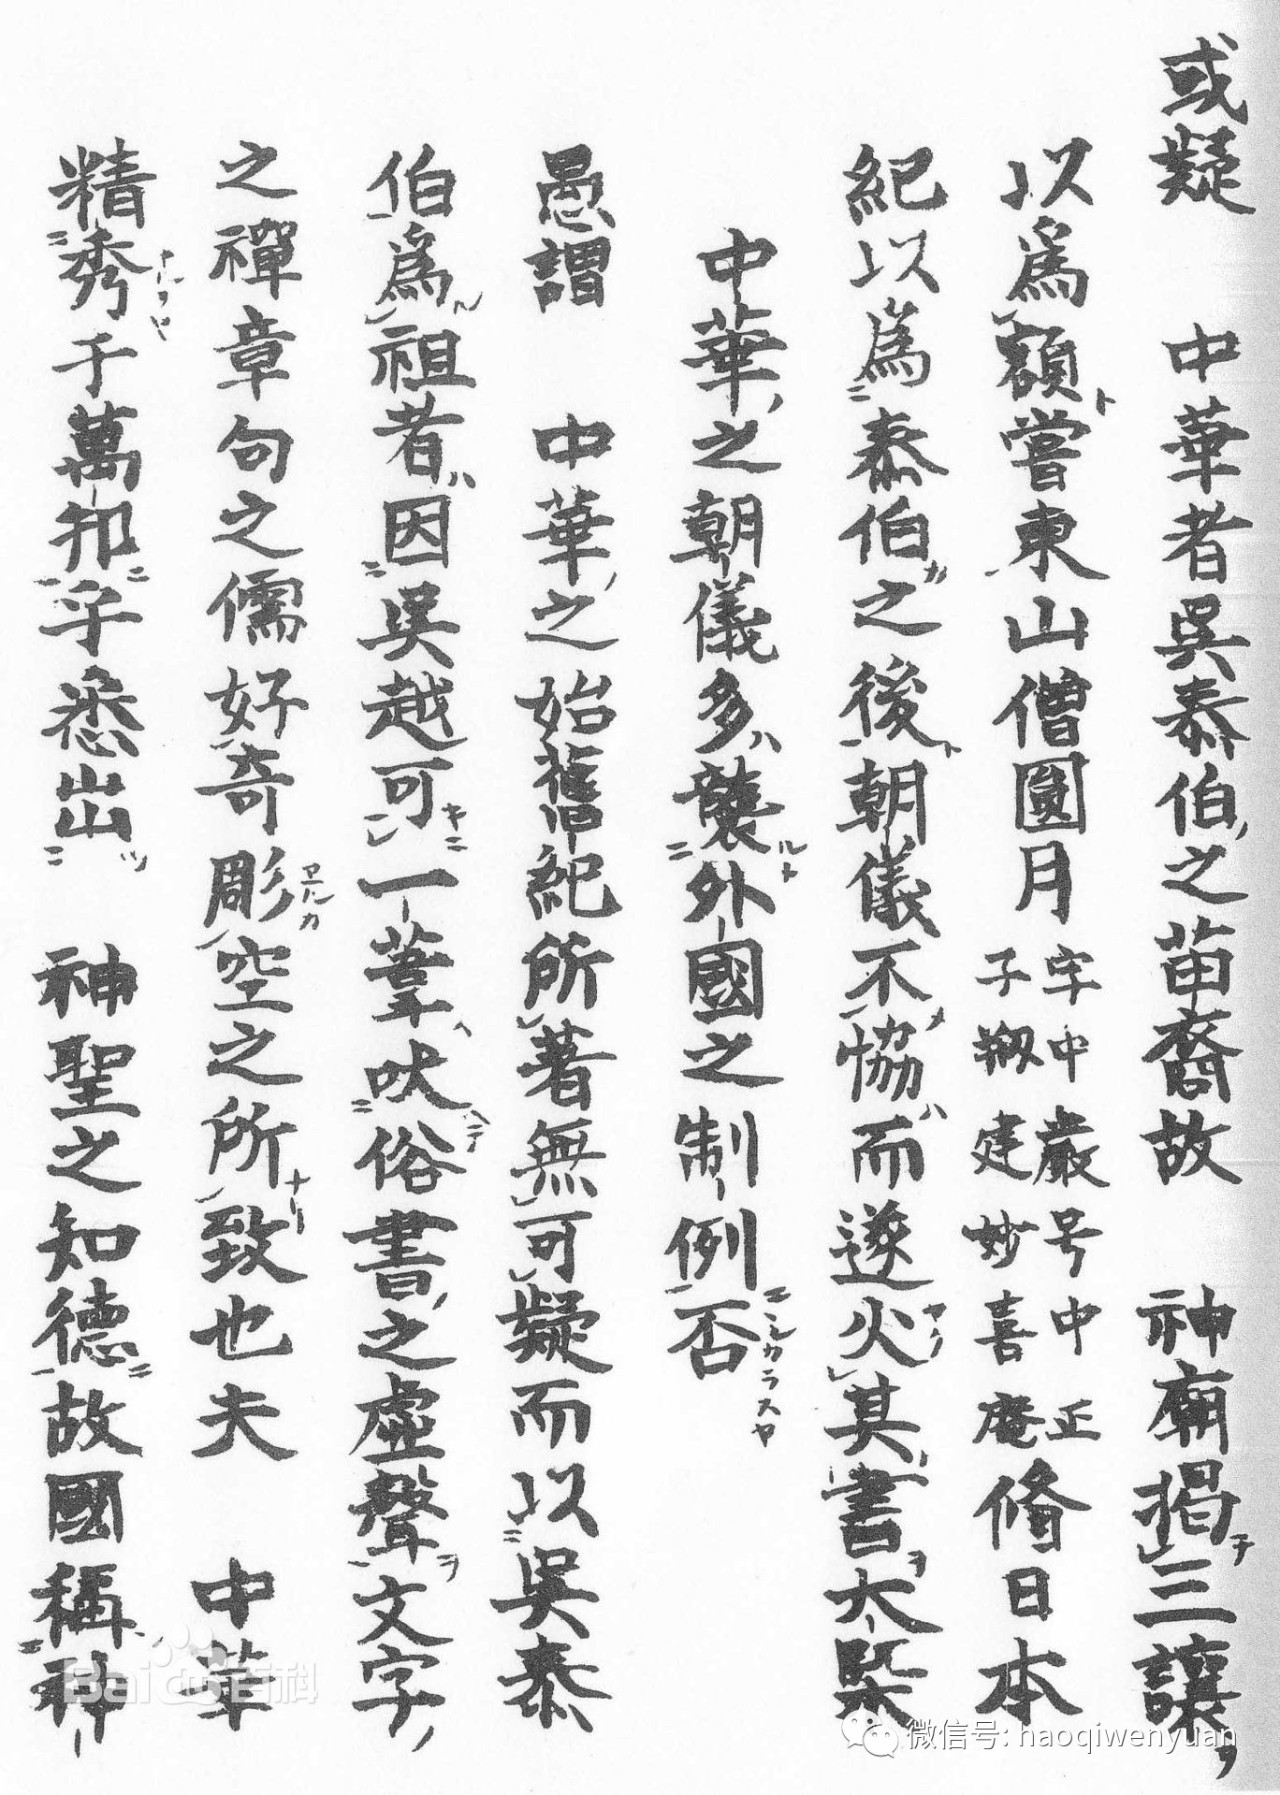 或疑　中華者呉泰伯之苗裔故　神廟掲三讓
以爲額嘗東山僧圓月字中巖号中正子剏建妙喜庵脩日本
紀以爲泰伯之後朝儀不恊而遂火其書大槩
中華之朝儀多襲外國之制例否
愚謂　中華之始舊紀所著無可疑而以呉泰
伯爲祖者因呉越可一葦吠俗書之虛聲文字
之禪章句之儒好奇彫空之所致也夫　中華
精秀于萬邦乎悉出　神聖之知德故國稱神
Baidu百科
微信号: haoqiwenyuan